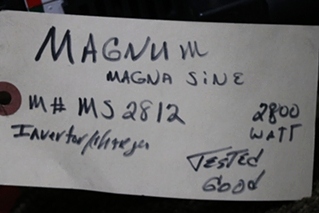 MAGNUM
MAGNA SiNE
M# MS2812
2800
WATT
Invertor/Charger
TesTed
Good